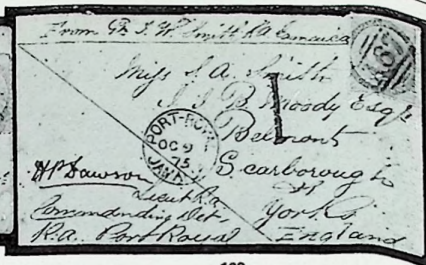 From Gr J. W. Smith R.A. Jamaica
Miss S. A. Smith
J. B. Moody Esqr
Belmont
Scarborough
Yorks
England
PORT-ROYAL
OC 9
75
JAMAICA
H P Dawson
Lieut R.a.
Commanding Det.
R.a. Port Royal